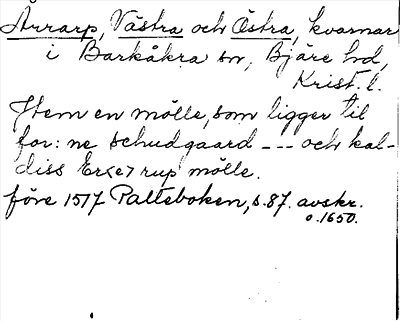 Årrarp, Västra och Östra, kvarnar
i Barkåkra sn, Bjäre hd,
Krist. l.
Item en mölle, som ligger til
for: ne schudgaard --- och kal-
diss Erxe7rup mölle.
före 1517 Palteboken, s. 87. avskr.
o. 1650.